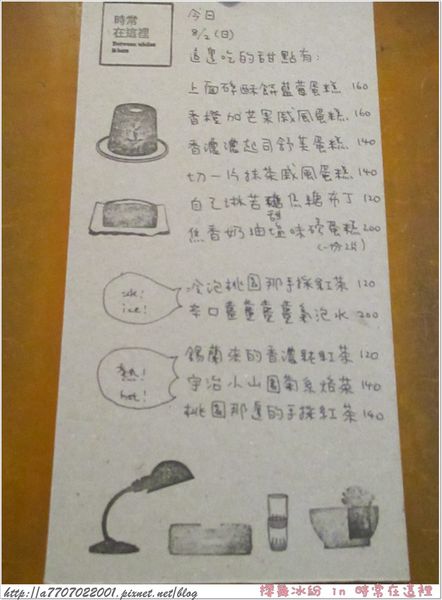 時常
在這裡
Between whiles
is here
今日
8/2(日)
這裏吃的甜點有:
上面碎酥餅藍莓蛋糕 160
香橙加芒果戚風蛋糕 160
香濃濃起司舒芙蛋糕 140
切一片抹茶戚風蛋糕 140
自己淋苦甜焦糖布丁 120
焦香奶油塩味磅蛋糕 200
(一份2片)
ice!
冷泡桃園那手採紅茶 120
辛口薑薑薑薑氣泡水 200
熱!
hot!
錫蘭來的香濃純紅茶 120
宇治小山園菊系焙茶 140
桃園那邊的手採紅茶 140
http://a7707022001.pixnet.net/blog
探尋冰紛 in 時常在這裡